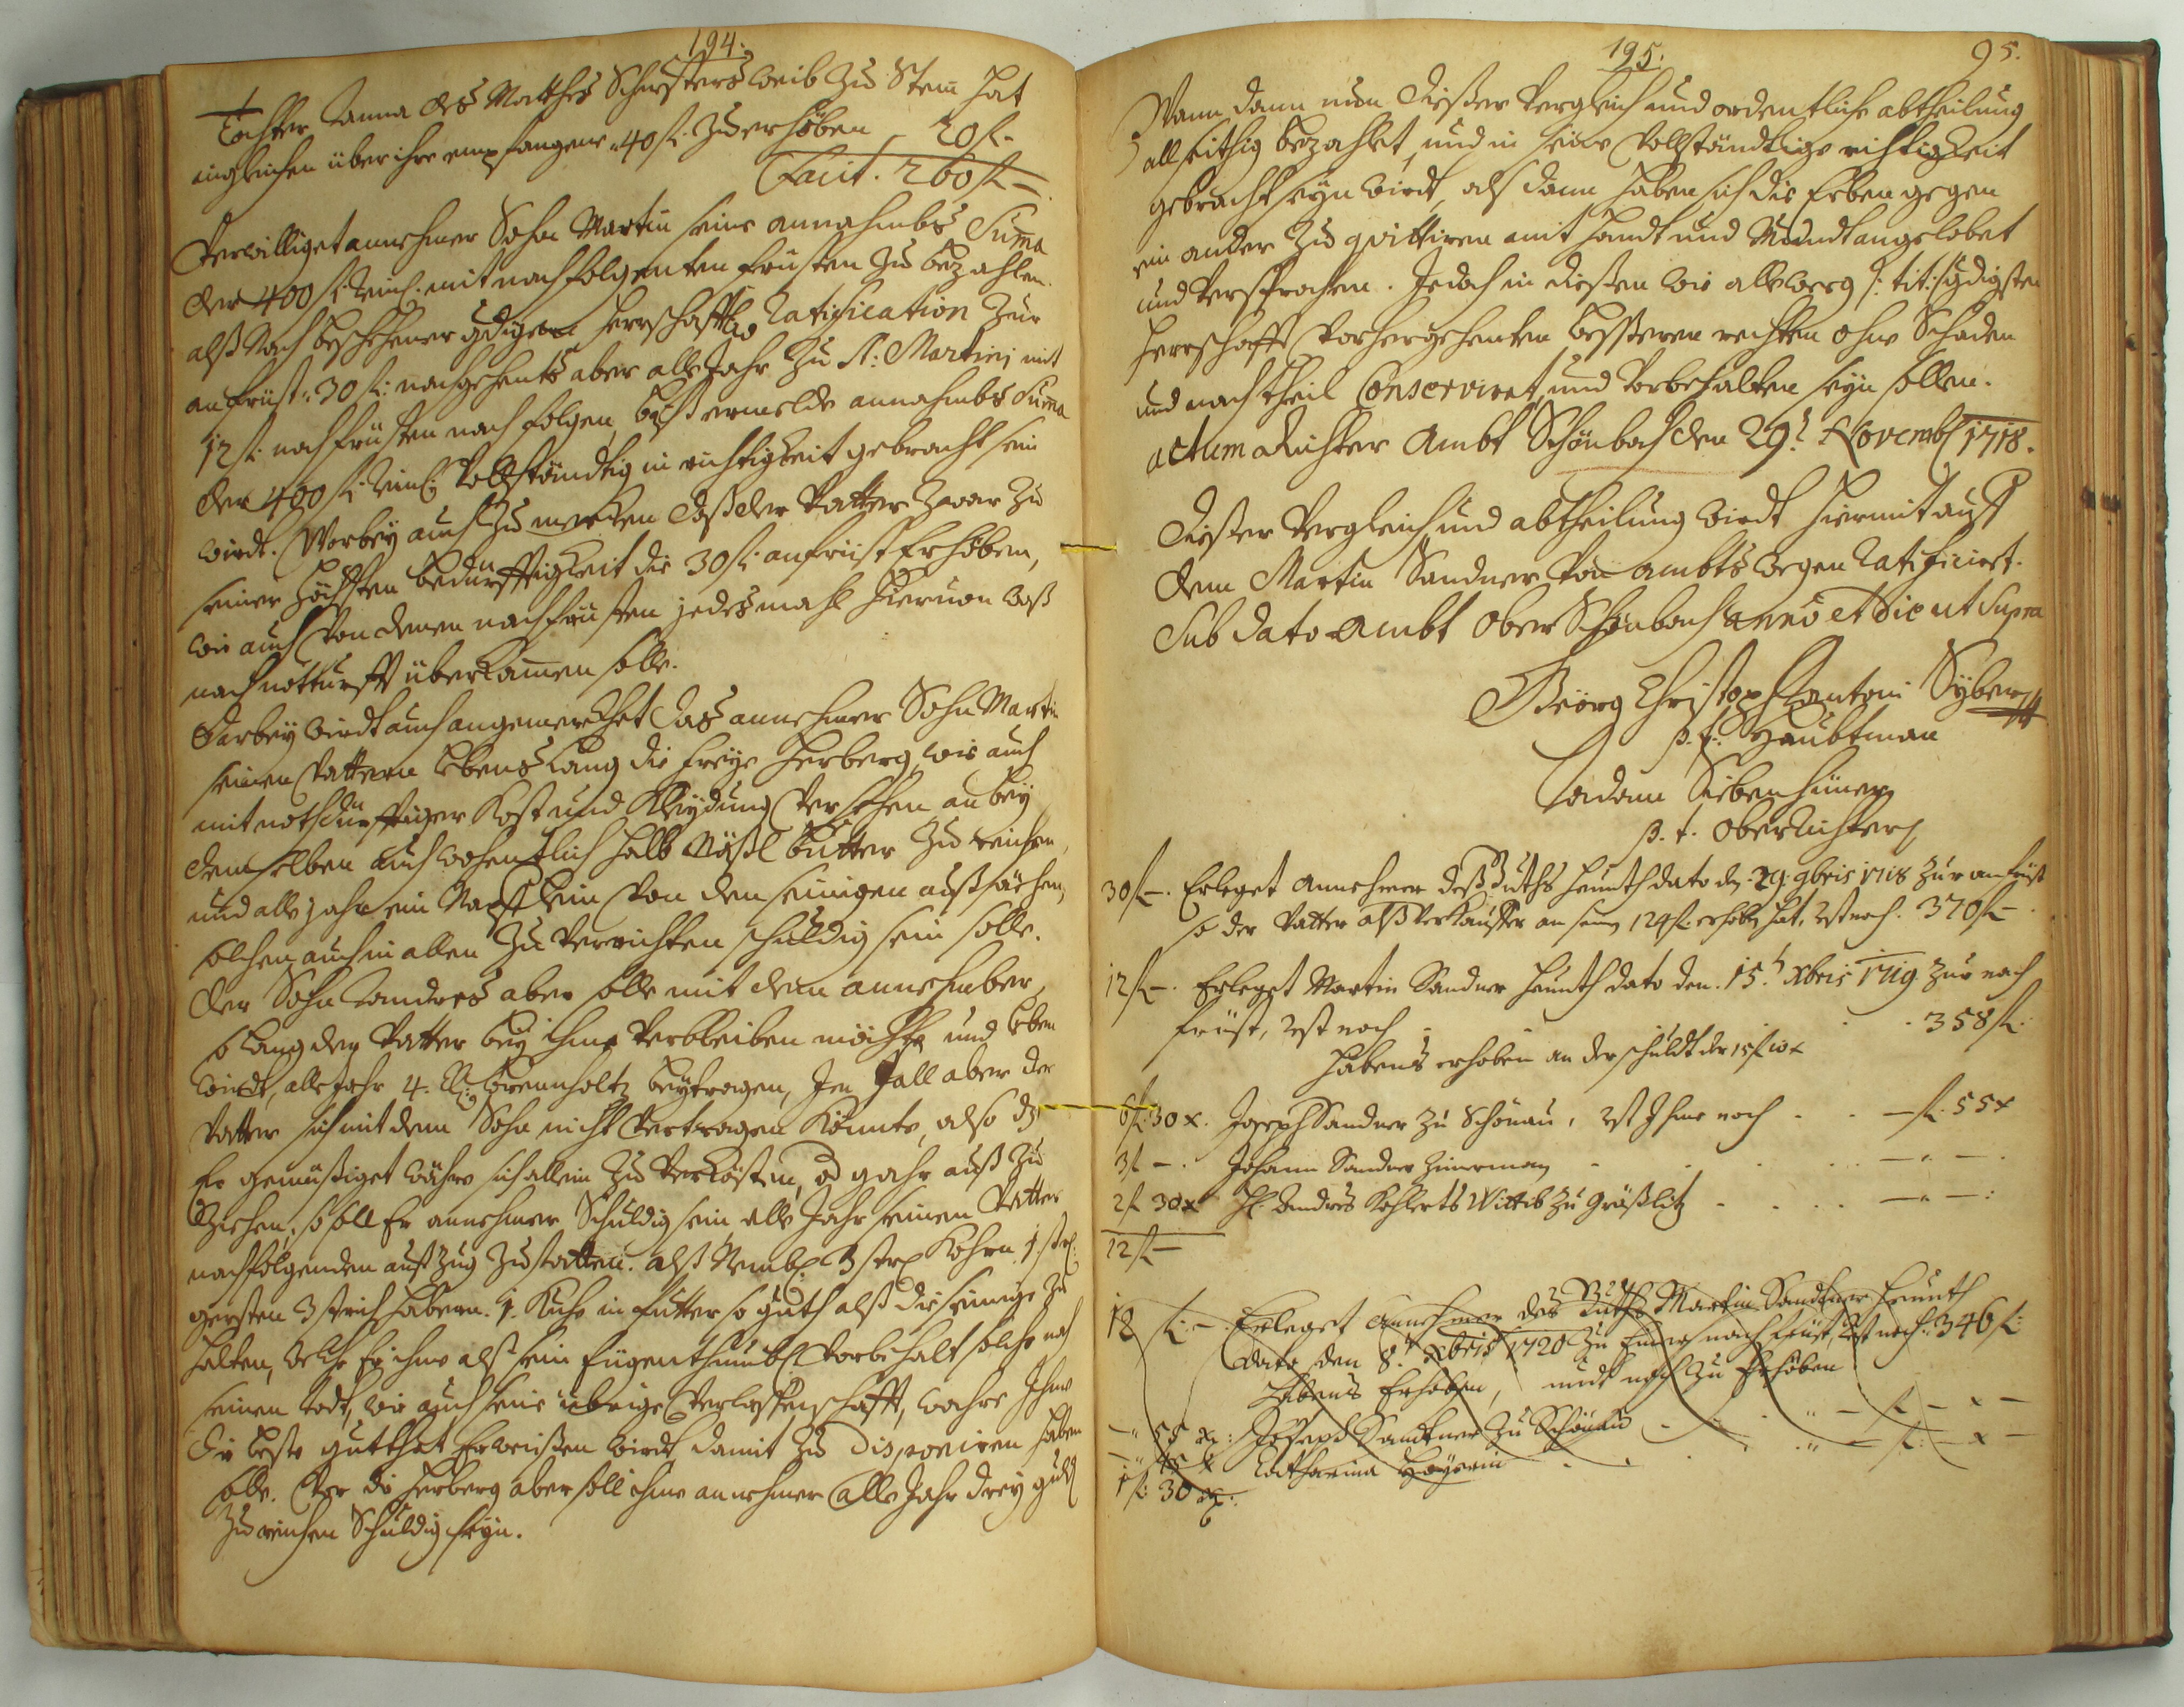 194.
Tochter Anna des Matthes Schusters weib zu Stein hat
ingleichen über ihre empfangene 40 fl. zu erhöben 20 fl.
Facit. 260 fl –
Verwilliget annehmer Sohn Martin seine annahmbs Suma
der 400 fl. mit nachfolgenten frusten zu bezahlen.
alß Nach beschehener gdigen Herrschafftl. Ratification zur
anfrüst: 30 fl: nachgehents aber alle Jahr zu St: Martinj mit
12 fl. nachfrüsten nach folgen, biß ermelde annahmbs Suma
der 400 fl: vollständtig in richtigkeit gebracht sein
wirdt. Worbey auch zu merken daß der Vatter zwar zu
seiner höchsten bedürfftigkeit die 30 fl. anfrist Erhöben,
wie auch von denen nachfrüsten jedesmahl hiervon waß
nach notturfft überkamen solle.
Darbey wirdt auch angemerckhet das annehmer Sohn Martin
seinen Vattern Lebens Lang die freye Herberg, wie auch
mit nothdürfftiger Kost und Kleydung Versehen anbey
demselben auch wohentlich halb Nößl butter zu reichen,
und alle jahr ein Napf Lein von den seinigen außsäehen,
solchen auch in allen zu verrichten schuldig sein solle.
Der Sohn Andres aber solle mit dem annehmber
so lang der Vatter bey ihme Verbleiben möchte und Leben
wirdt, alle Jahr 4. Kl: brennholtz beytragen, Im fall aber der
Vatter sich mit dem Sohn nicht Vertragen könnte, also dz
Er gemüßiget währe sich allein zu Verkösten, od gahr auß zu
Ziehen, so soll Er annehmer Schuldig sein alle Jahr seinen Vatter
nachfolgenden außzug zustatten. alß Nembl. 3 strf Kohrn 1. strf:
gersten 3 strich Habern. 1. Kuhe in futter so guth alß die seinige zu
halten, welche Er ihme alß sein Eigenthumbl. Vorbehalt solche nach
seinen Todt, wie auch seine übrige Verlassenschafft, wehme Ihme
Die beste gutthat Erweisßen wirdt, damit zu Disponiren haben
solle. Vor die Herberg aber soll ihme annehmer alle Jahr drey guld
zu reichen Schuldig seyn.
195. 95.
Wann dann nun dieser Vergleich und ordentliche abtheilung
allseithig bezahlet, und in seine Vollständtige richtigkeit
gebracht seyn wirdt, alß dann haben sich die Erben gegen
ein ander zu quittiren mit Handt und Mundt angelobet
und Versprochen. Jedoch in dießen wie allweeg /: tit: /gdigsten
Herrschafft Vorhergehenten Bessern rechten ohne Schaden
und nachtheil Conserviret, und Vorbehalten seyn sollen.
actum Richter Ambt Schönbach den 29t Novemb. 1718.
Dieser Vergleich und abtheilung wirdt hiermit auff
dem Martin Sandner von ambts wegen Ratificiret.
Sub dato Ambt Ober Schönbach anno et Die ut Supra
Georg Christoph Antoni
p. t. Haubtman
Adam Siebenhüner
p. t. Oberrichter
30 fl –. Erleget Annehmer deß Guths Heunth dato den 29. 9bris 1718 zur anfrüst
so der Vatter alß Verkauffer an seine 124 fl. erhobe hat, rest noch. 370 fl –
12 fl –. Erleget Martin Sandner Heunth dato den. 15.t Xbris 1719 zur nach
früst, rest noch . . . 358 fl:
Habens erhoben an der schuldt der 15 fl 10 x
6 fl. 30 x. Joseph Sandner zu Schönau, rest Ihme noch . . – fl. 55 x
3 fl –. Johann Sandner Zimerman . . . – " –.
2 fl 30 x Hl. Andres Köhlerts Wittib zu Graßlitz . . . . – " – :
12 fl –
12 fl: –. Erleget Annehmer des Guths Martin Sandtner Heunth
dato den 8.t Xbris 1720 zu Einer nach früst, Rest noch: 346 fl:
Habens Erhoben, undt noch Zu Erhöben
– " 55 x: Joseph Sandtner zu Schönau – . . " – fl – x –
– " 45 x Catharina . . . " – fl: – x –
1 fl: 30 x: